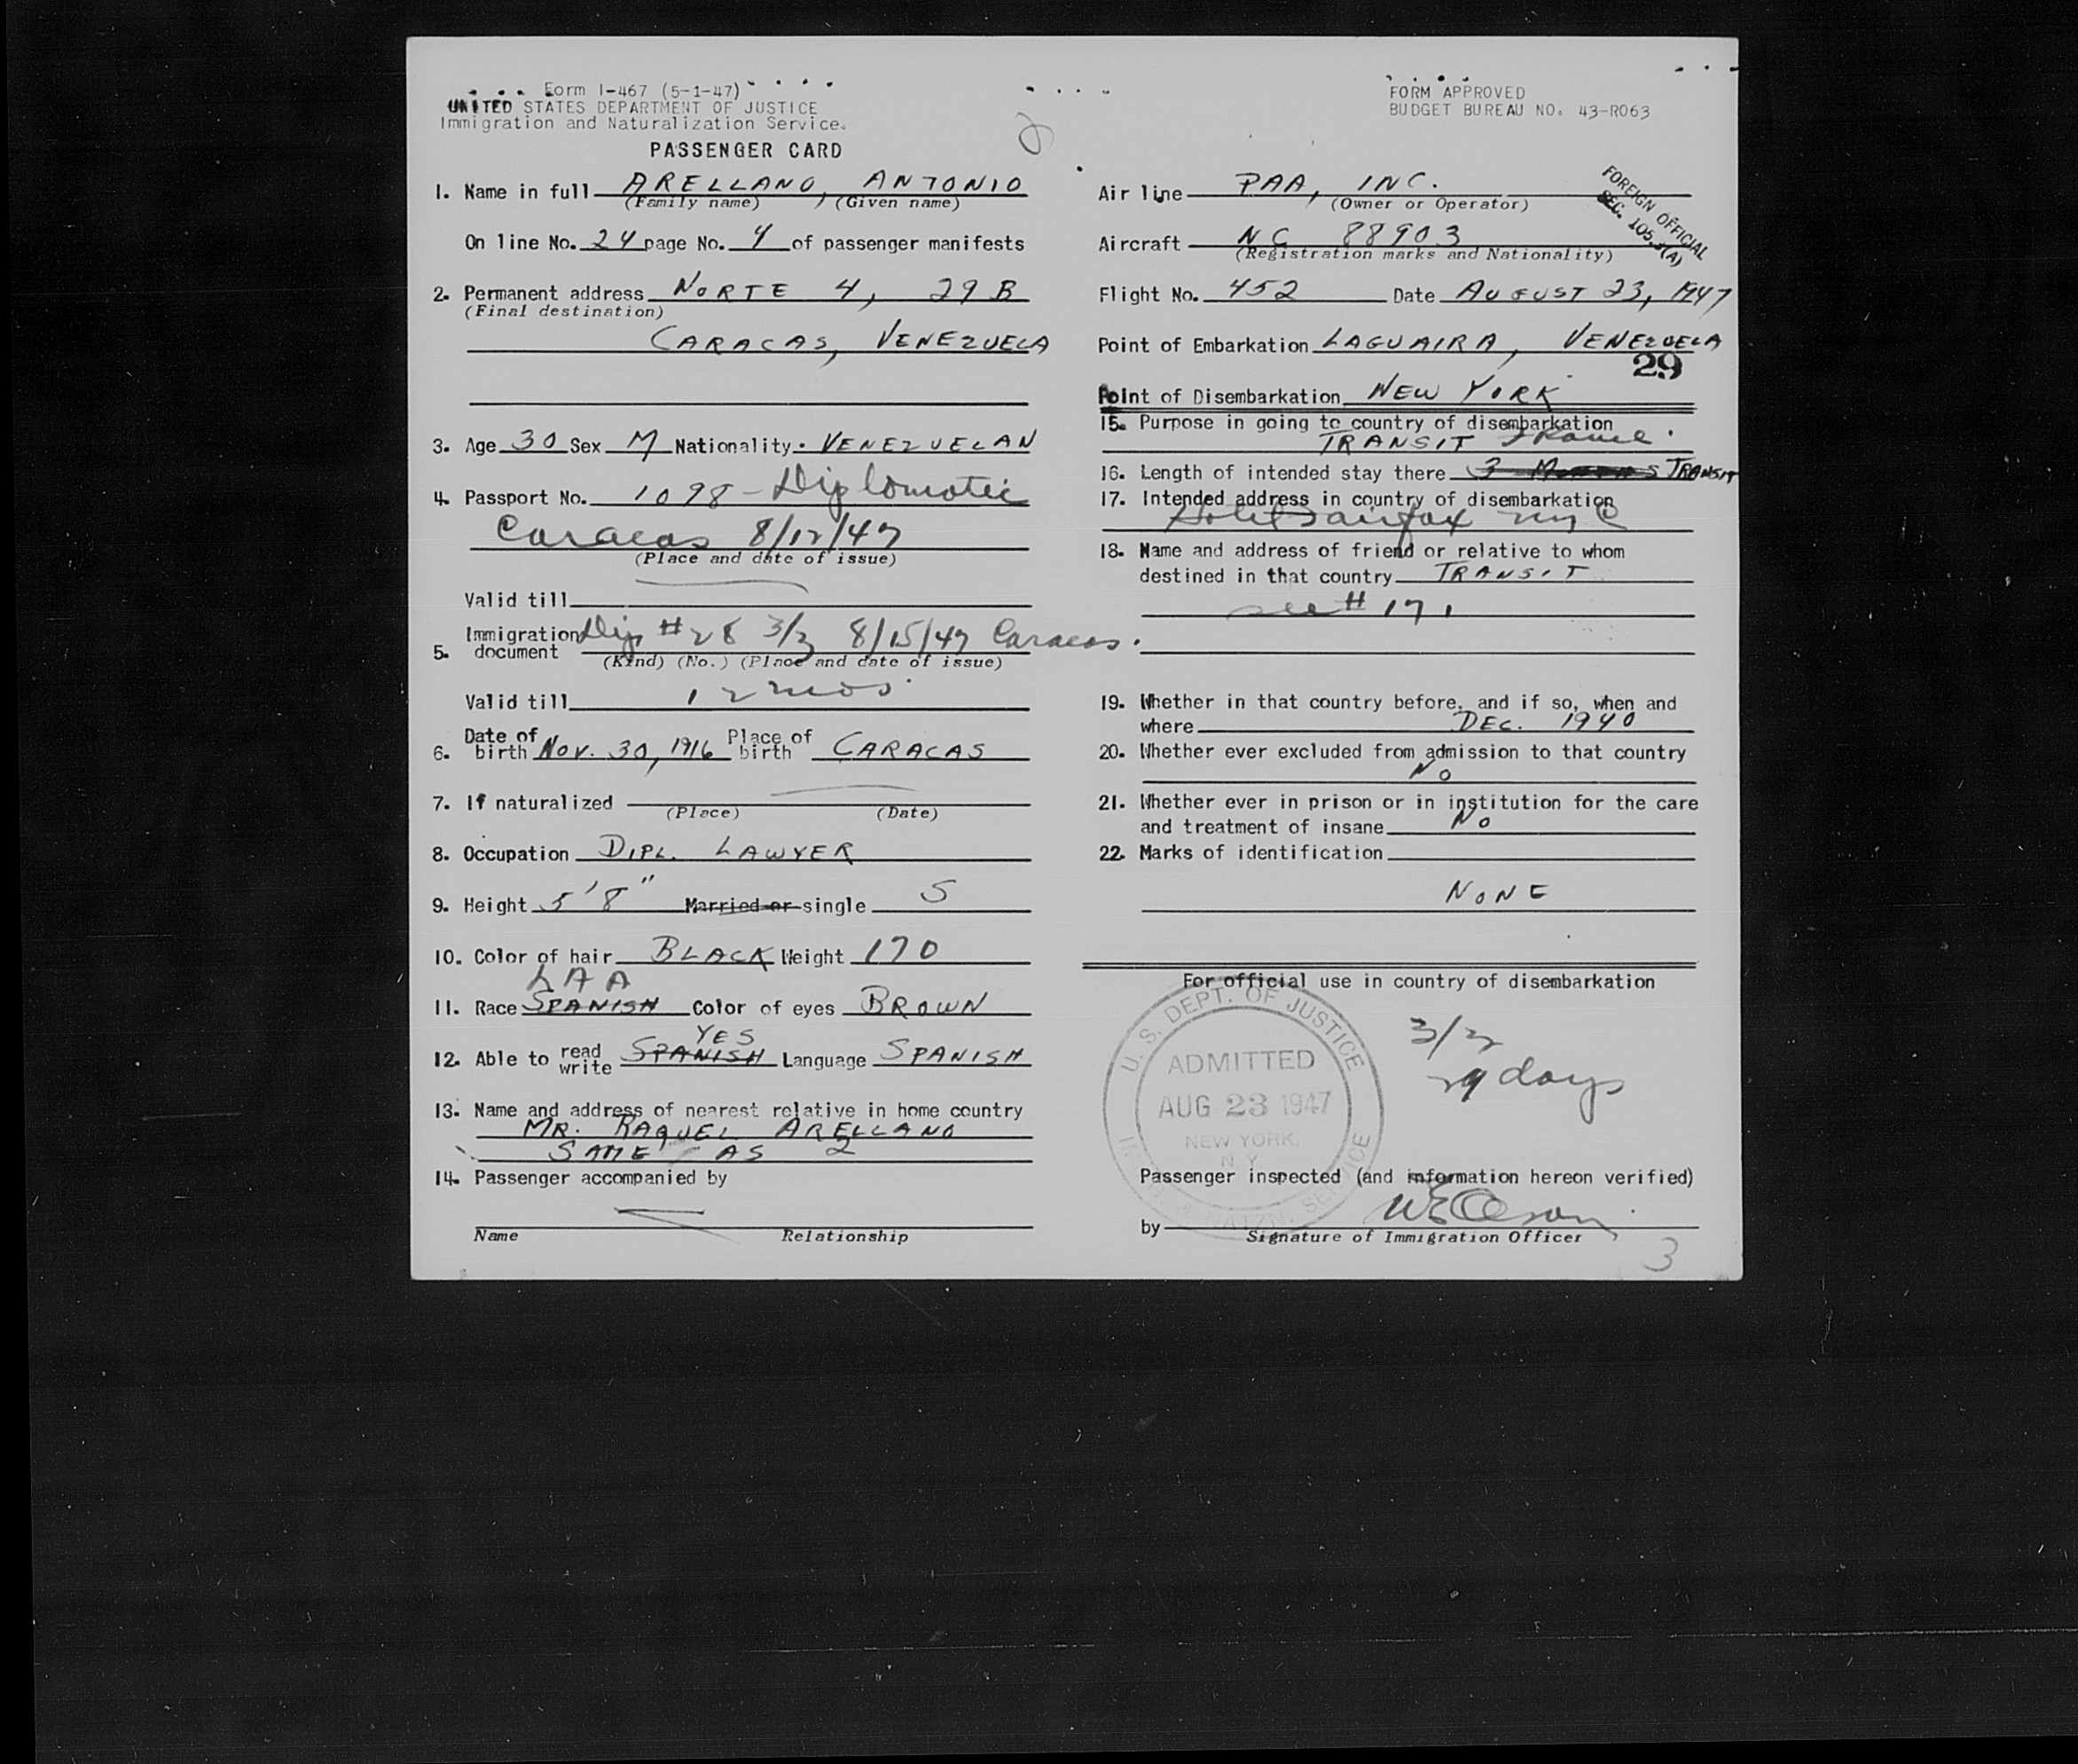 Form I-467 (5-1-47)
UNITED STATES DEPARTMENT OF JUSTICE
Immigration and Naturalization Service.
PASSENGER CARD
1. Name in full ARELLANO, ANTONIO
(Family name) (Given name)
On line No. 24 page No. 4 of passenger manifests
2. Permanent address NORTE 4, 29 B
(Final destination)
CARACAS, VENEZUELA
3. Age 30 Sex M Nationality. VENEZUELAN
4. Passport No. 1098 - Diplomatic
Caracas 8/12/47
(Place and date of issue)
Valid till
5. Immigration document Dip #28 3/2 8/15/47 Caracas.
(Kind) (No.) (Place and date of issue)
Valid till 12 mos.
6. Date of birth NOV. 30, 1916 Place of birth CARACAS
7. If naturalized
(Place) (Date)
8. Occupation DIPL. LAWYER
9. Height 5'8" Married or single S
10. Color of hair BLACK Weight 170
LAA
11. Race SPANISH Color of eyes BROWN
YES
12. Able to read write SPANISH Language SPANISH
13. Name and address of nearest relative in home country
MR. RAQUEL ARELLANO
SAME AS 2
14. Passenger accompanied by
Name Relationship
FORM APPROVED
BUDGET BUREAU NO. 43-R063
Air line PAA, INC.
(Owner or Operator)
FOREIGN OFFICIAL
SEC. 105.3(A)
Aircraft NC 88903
(Registration marks and Nationality)
Flight No. 452 Date AUGUST 23, 1947
Point of Embarkation LAGUAIRA, VENEZUELA
29
Point of Disembarkation NEW YORK
15. Purpose in going to country of disembarkation
TRANSIT France.
16. Length of intended stay there 3 MONTHS TRANSIT
17. Intended address in country of disembarkation
Hotel Fairfax NYC
18. Name and address of friend or relative to whom
destined in that country TRANSIT
see # 17
19. Whether in that country before, and if so, when and
where DEC. 1940
20. Whether ever excluded from admission to that country
NO
21. Whether ever in prison or in institution for the care
and treatment of insane NO
22. Marks of identification
NONE
For official use in country of disembarkation
U. S. DEPT. OF JUSTICE
ADMITTED
AUG 23 1947
NEW YORK,
N.Y.
3/2
29 days
Passenger inspected (and information hereon verified)
by
Signature of Immigration Officer
3